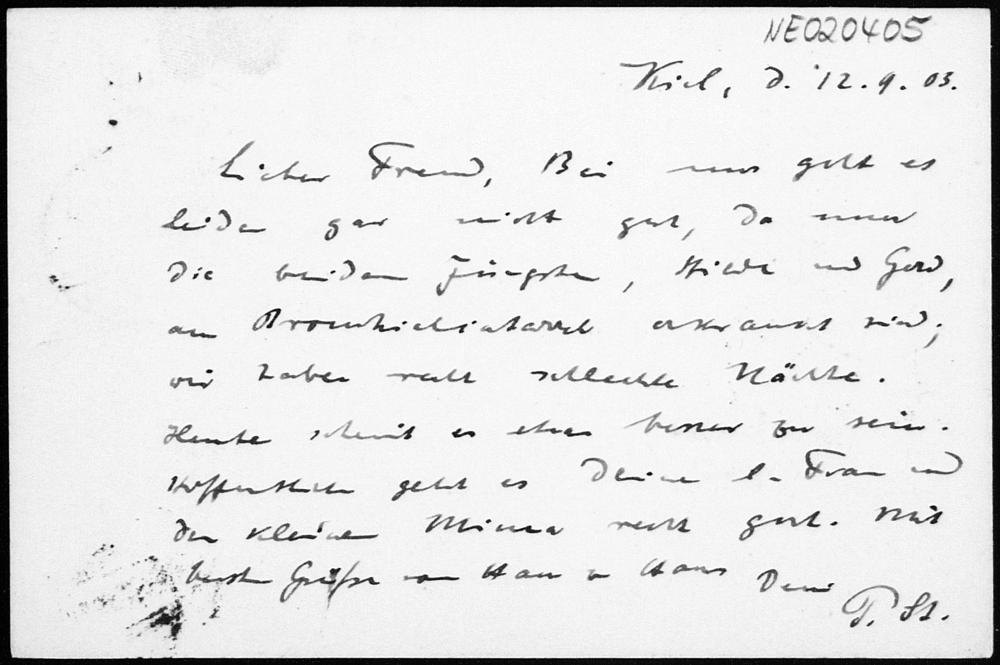 NE020405
Kiel, d. 12.9.03.
Lieber Freund, Bei uns geht es
leider gar nicht gut, da unser
die beiden Jüngsten, Hilde und Gerd,
an Bronchialkatarrh erkrankt sind;
wir haben recht schlechte Nächte.
Heute scheint es etwas besser zu sein.
Hoffentlich geht es Deiner l. Frau und
der kleinen Minna recht gut. Mit
besten Grüßen von Haus zu Haus Dein
P. St.